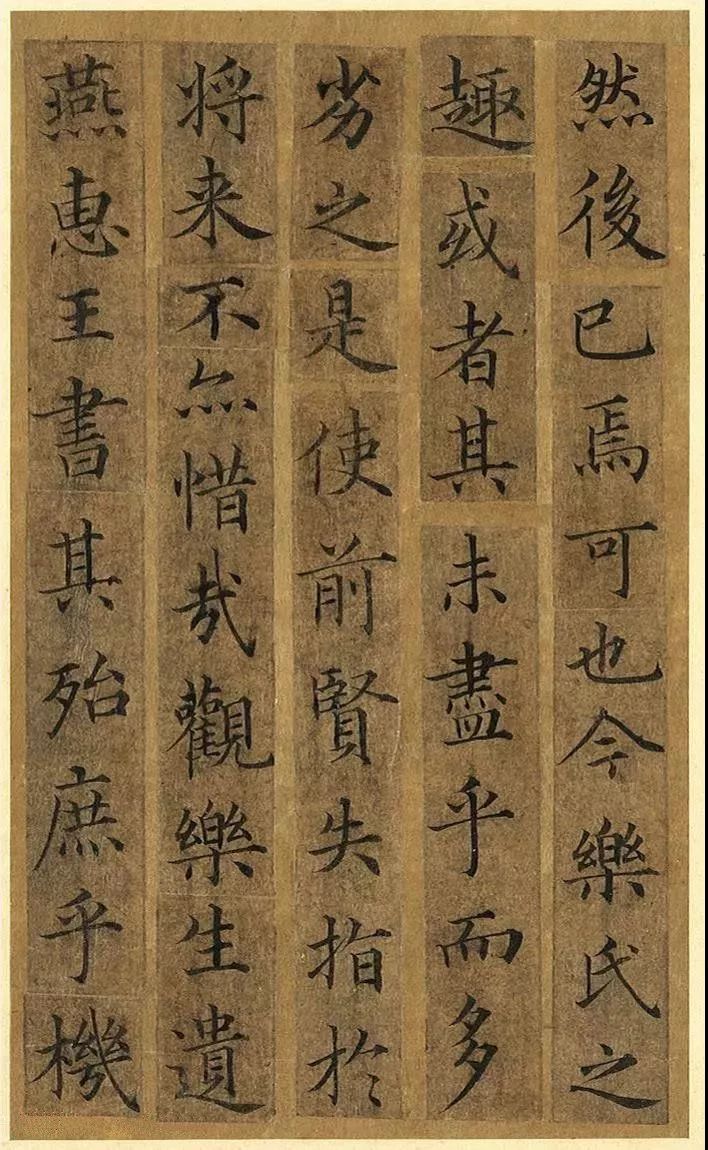 然後已焉可也今樂氏之
趣或者其未盡乎而多
劣之是使前賢失指於
将来不尒惜哉觀樂生遺
燕惠王書其殆庶乎機